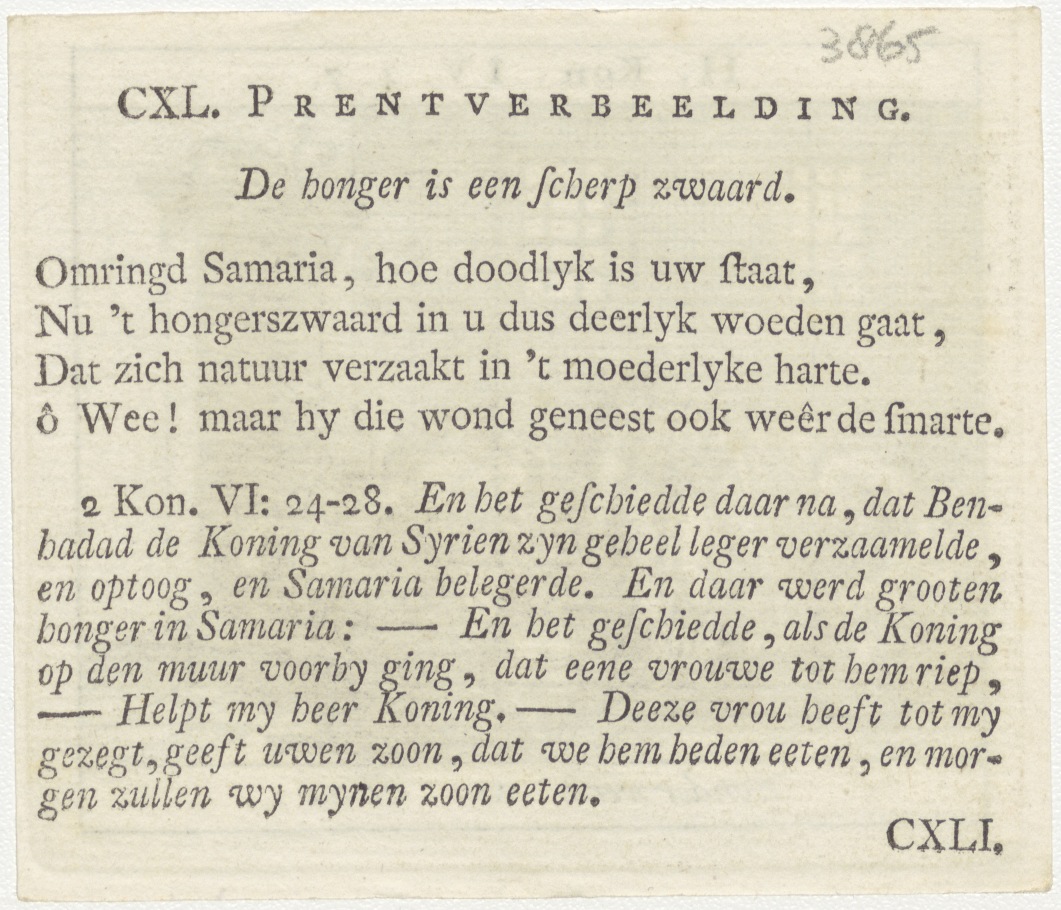 3865
CXL. PRENTVERBEELDING.
De honger is een ſcherp zwaard.
Omringd Samaria, hoe doodlyk is uw ſtaat,
Nu 't hongerszwaard in u dus deerlyk woeden gaat,
Dat zich natuur verzaakt in 't moederlyke harte.
ô Wee! maar hy die wond geneest ook weêr de ſmarte.
2 Kon. VI: 24-28. En het geſchiedde daar na, dat Ben-
hadad de Koning van Syrien zyn geheel leger verzaamelde,
en optoog, en Samaria belegerde. En daar werd grooten
honger in Samaria: — En het geſchiedde, als de Koning
op den muur voorby ging, dat eene vrouwe tot hem riep,
— Helpt my heer Koning. — Deeze vrou heeft tot my
gezegt, geeft uwen zoon, dat we hem heden eeten, en mor-
gen zullen wy mynen zoon eeten.
CXLI.